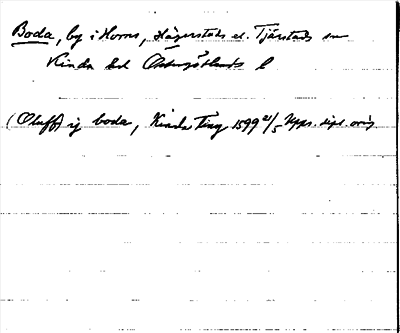 Boda, by i Horns, Hägerstads el. Tjärstads sn
Kinda hd Östergötlands l
(Oluff) ij boda, Kinda Ting 1599 21/5 Upps. dipl. orig